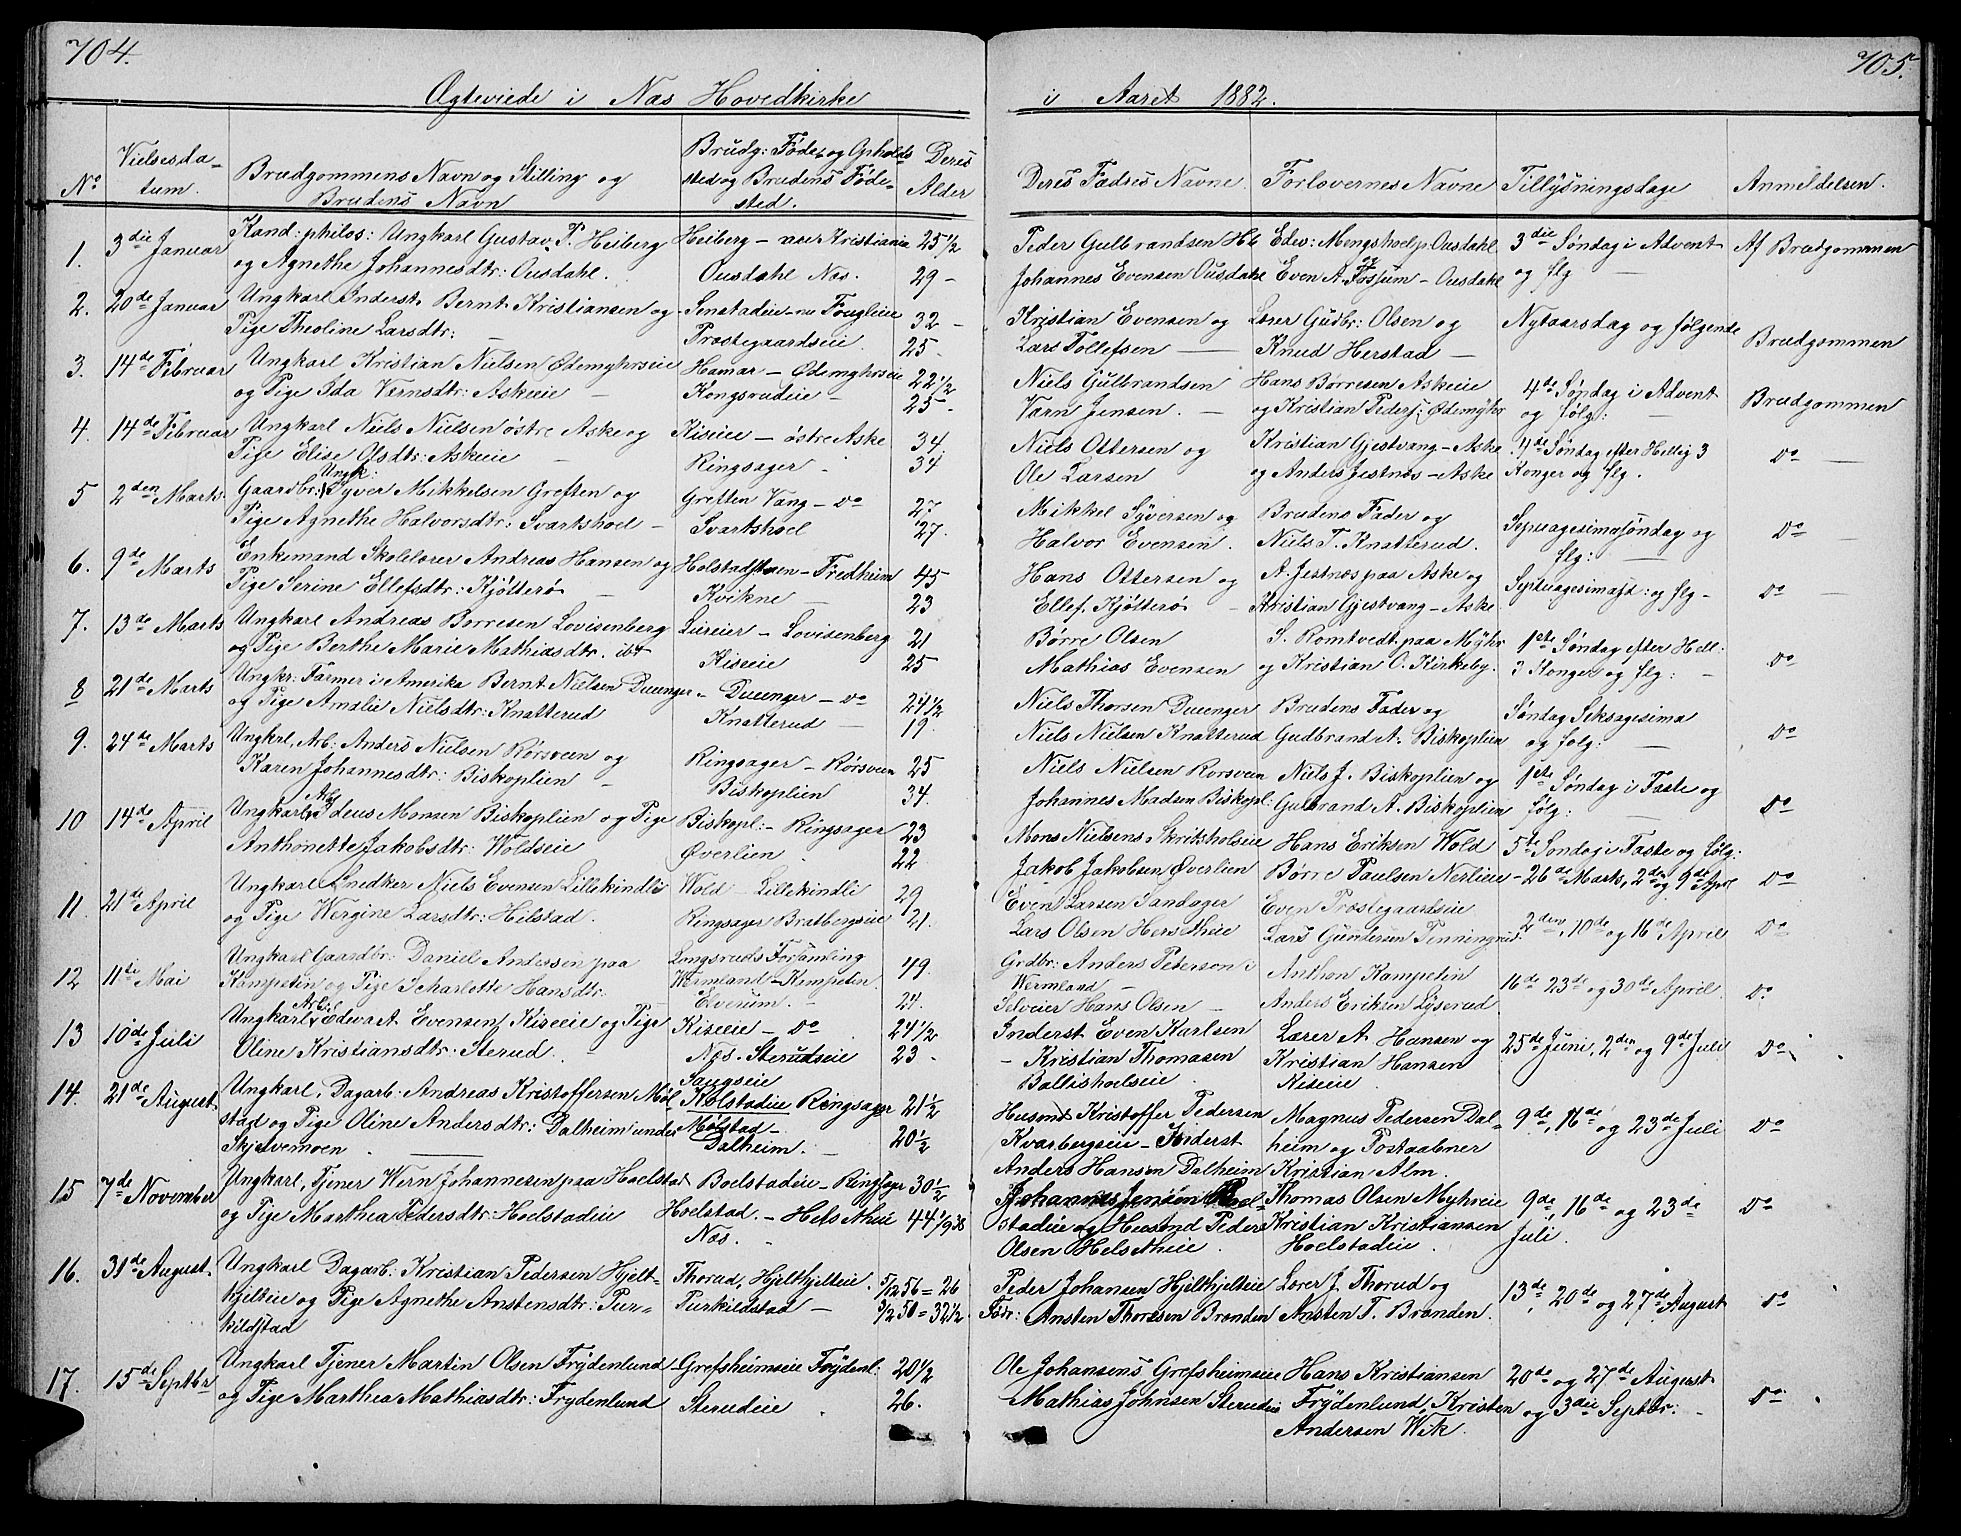 704.
Ægteviede i Næs Hovedkirke
No
Vielsesda-
tum.
Brudgommens Navn og Stilling og
Brudens Navn
Brudg: Føde- og Opholds
sted og Brudens Føde-
sted.
Deres
Alder
1. 3die Januar
Kand: philos: Ungkarl Gustav P. Heiberg
og Agnethe Johannesdtr: Ousdahl.
Heiberg - nær Kristiania
Ousdahl Næs.
25 1/2
29 -
2. 20de Januar
Ungkarl Inderst. Bernt Kristiansen og
Pige Theoline Larsdtr:
Præstegaardseie
32 -
25 -
3. 14de Februar
Ungkarl Kristian Nielsen Ødemyhrseie
og Pige Ida Værnsdtr: Askeeie -
Hamar - Ødemyhrseie
Kongsrudeie -
22 1/2
25 -
4. 14de Februar
Ungkarl Niels Nielsen østre Aske og
Pige Elise Olsdtr: Askeeie -
Kiseeie - østre Aske
Ringsager -
34
34
5 2den Marts
Gaardbr: Ungk: Syver Mikkelsen Greften og
Pige Agnethe Halvorsdtr: Svartshoel -
Greften Vang - do
Svartshoel
27
27.
6. 9de Marts
Enkemand Skolelærer Andreas Hansen og
Pige Serine Ellefsdtr: Kjølterø
Holstadsveen - Fredheim
Kvikne
45
23
7. 13de Marts
Ungkarl Andreas Børresen Lovisenberg
og Pige Berthe Marie Mathiasdtr. ibt
Lureier - Lovisenberg
Kiseeie
21
25
8 21de Marts
Ungkr: Farmer i Amerika Bernt Nielsen Duenger -
og Pige Amalie Nielsdtr: Knatterud
Duenger - do
Knatterud -
24 1/2
19.
9. 24de Marts
Ungkrl, Arb: Anders Nielsen Rørsveen og
Karen Johannesdtr: Biskoplien -
Ringsager - Rørsveen
Biskoplien
25
34.
10 14de April
Ungkarl, Arb: Ideus Monsen Biskoplien og Pige
Anthonette Jakobsdtr: Woldseie
Biskopl: - Ringsager
Øverlien
23
22
11. 21de April
Ungkarl Snedker Niels Evensen Lillekindli
og Pige Wergine Larsdtr: Hilstad.
Wold - Lillekindli
Ringsager Bratbergseie
29
21.
12 11te Mai
Ungkarl Gaardbr: Daniel Andersen paa
Kampetin og Pige Scharlotte Hansdtr:
Lungsruds Forsamling
Wermland - Kampetin.
Elverum. -
49.
21.
13 10de Juli
Ungkarl, Arb: Edevart Evensen Kiseeie og Pige
Oline Kristiansdtr: Sterud.
Kiseeie - do
Næs. Sterudseie
24 1/2
23 -
14. 21de August.
Ungkarl, Dagarb: Andreas Kristoffersen Møl-
stad og Pige Oline Andersdtr: Dalheim under
Skjelvemoen.
Saugseie
Kolstadeie Ringsager
Mølstad -
Dalheim. -
21 1/2
20 1/2
15 7de November
Ungkarl, Tjener Wern Johannesen paa Hoelstad
og Pige Marthea Pedersdtr: Hoelstadeie
Boelstadeie - Ringsager
Hoelstad. - Helsetheie
Næs.
30 1/2
44 1/9 38
16. 31de August.
Ungkarl Dagarb: Kristian Pedersen Hjelt-
hjelteie og Pige Agnethe Anstensdtr: Pur-
kildstad
Thorud, Hjelthjelteie.
Purkildstad -
5/12 56 = 26
3/2 50 = 32 1/2
17. 15de Septbr
Ungkarl Tjener Martin Olsen Frydenlund
og Pige Marthea Mathiasdtr: Frydenlund
Grefsheimseie Frydenl:
Sterudeie
20 1/2
26.
705.
i Aaret 1882.
Deres Fædres Navne
Forlovernes Navne
Tillysningsdage
Anmeldelsen.
Peder Gulbrandsen Hb
Johannes Evensen Ousdahl
Edev: Mengshoel p: Ousdahl
og Even A. Fossum - Ousdahl
3die Søndag i Advent
og flg -
Af Brudgommen
Kristian Evensen og
Lars Tollefsen -
Lærer Gudbr: Olsen og
Knud Herstad -
Nytaarsdag og følgende
Brudgommen
Niels Gulbrandsen
Værn Jensen. -
Hans Børresen Askeeie
og Kristian Peders: Ødemyhr
4de Søndag i Advent
og følg: -
Brudgommen
Niels Ottersen og
Ole Larsen
Kristian Gjestvang - Aske
og Anders Jestnæs - Aske
Søndag efter Hellig 3
Konger og flg.
do -
Mikkel Syversen og
Halvor Evensen.
Brudens Fader og
Niels T. Knatterud.
Sepuagesimasøndag og
flg: -
do -
Hans Ottersen og
Ellef. Kjølterø -
A. Jestnæs paa Aske og
Kristian Gjestvang - Aske
Septuagesimasd: og flg -
do -
Børre Olsen
Mathias Evensen
S. Romtvedt paa Myhr
og Kristian O. Kirkeby.
1ste Søndag efter Hell:
3 Konger og flg: -
do
Niels Thorsen Duenger
Niels Nielsen Knatterud
Brudens Fader og
Gudbrand A. Biskoplien
Søndag Seksagesima
og følg: -
do
Niels Nielsen Rørsveen
Johannes Madsen Biskopl:
Niels J. Biskoplien og
Gulbrand A. Biskoplien
1ste Søndag i Faste og
følg: -
do
Mons Nielsens Skritsholseie
Jakob Jakobsen Øverlien
Hans Eriksen Wold
Børre Paulsen Nerlieie
5te Søndag i Faste og følg:
- 26de Marts, 2den og 9de Apr
do
Even Larsen Sandager
Lars Olsen Herstheie
Even Præstegaardseie
Lars Gundersen Tenningrud.
2den, 10de og 16de April
do
Grdbr: Anders Peterson i
Wermland -
Selveier Hans Olsen -
Anthon Kampetin
Anders Eriksen Lyserud
16de 23de og 30de April
do
Inderst Even Karlsen
- Kristian Thomasen
Ballishoelseie.
Lærer A. Hansen og
Kristian Hansen
Kiseeie.
25de Juni, 2den og 9de Juli
do
Husmd Kristoffer Pedersen
Kvarbergseie - Inderst
Anders Hansen Dalheim
Magnus Pedersen Dal-
heim og Postaabner
Kristian Alm.
9de, 16de og 23de Juli
do
Johannes Jensen Boel-
stadeie og Husmd Peder
Olsen Helsetheie.
Thomas Olsen Myhreie
Kristian Kristiansen
Hoelstadeie.
9de, 16de og 23de
Juli.
do
Peder Johansen Hjelthjelteie
Fdr: Ansten Thoresen Brænden
Lærer J. Thorud og
Ansten T. Brænden.
13de, 20de og 27de August
do
Ole Johansens Grefsheimseie
Mathias Johnsen Sterudeie
Hans Kristiansen
Frydenlund, Kristen
Andersen Wik.
20de og 27de August.
og 3die Septbr: -
do